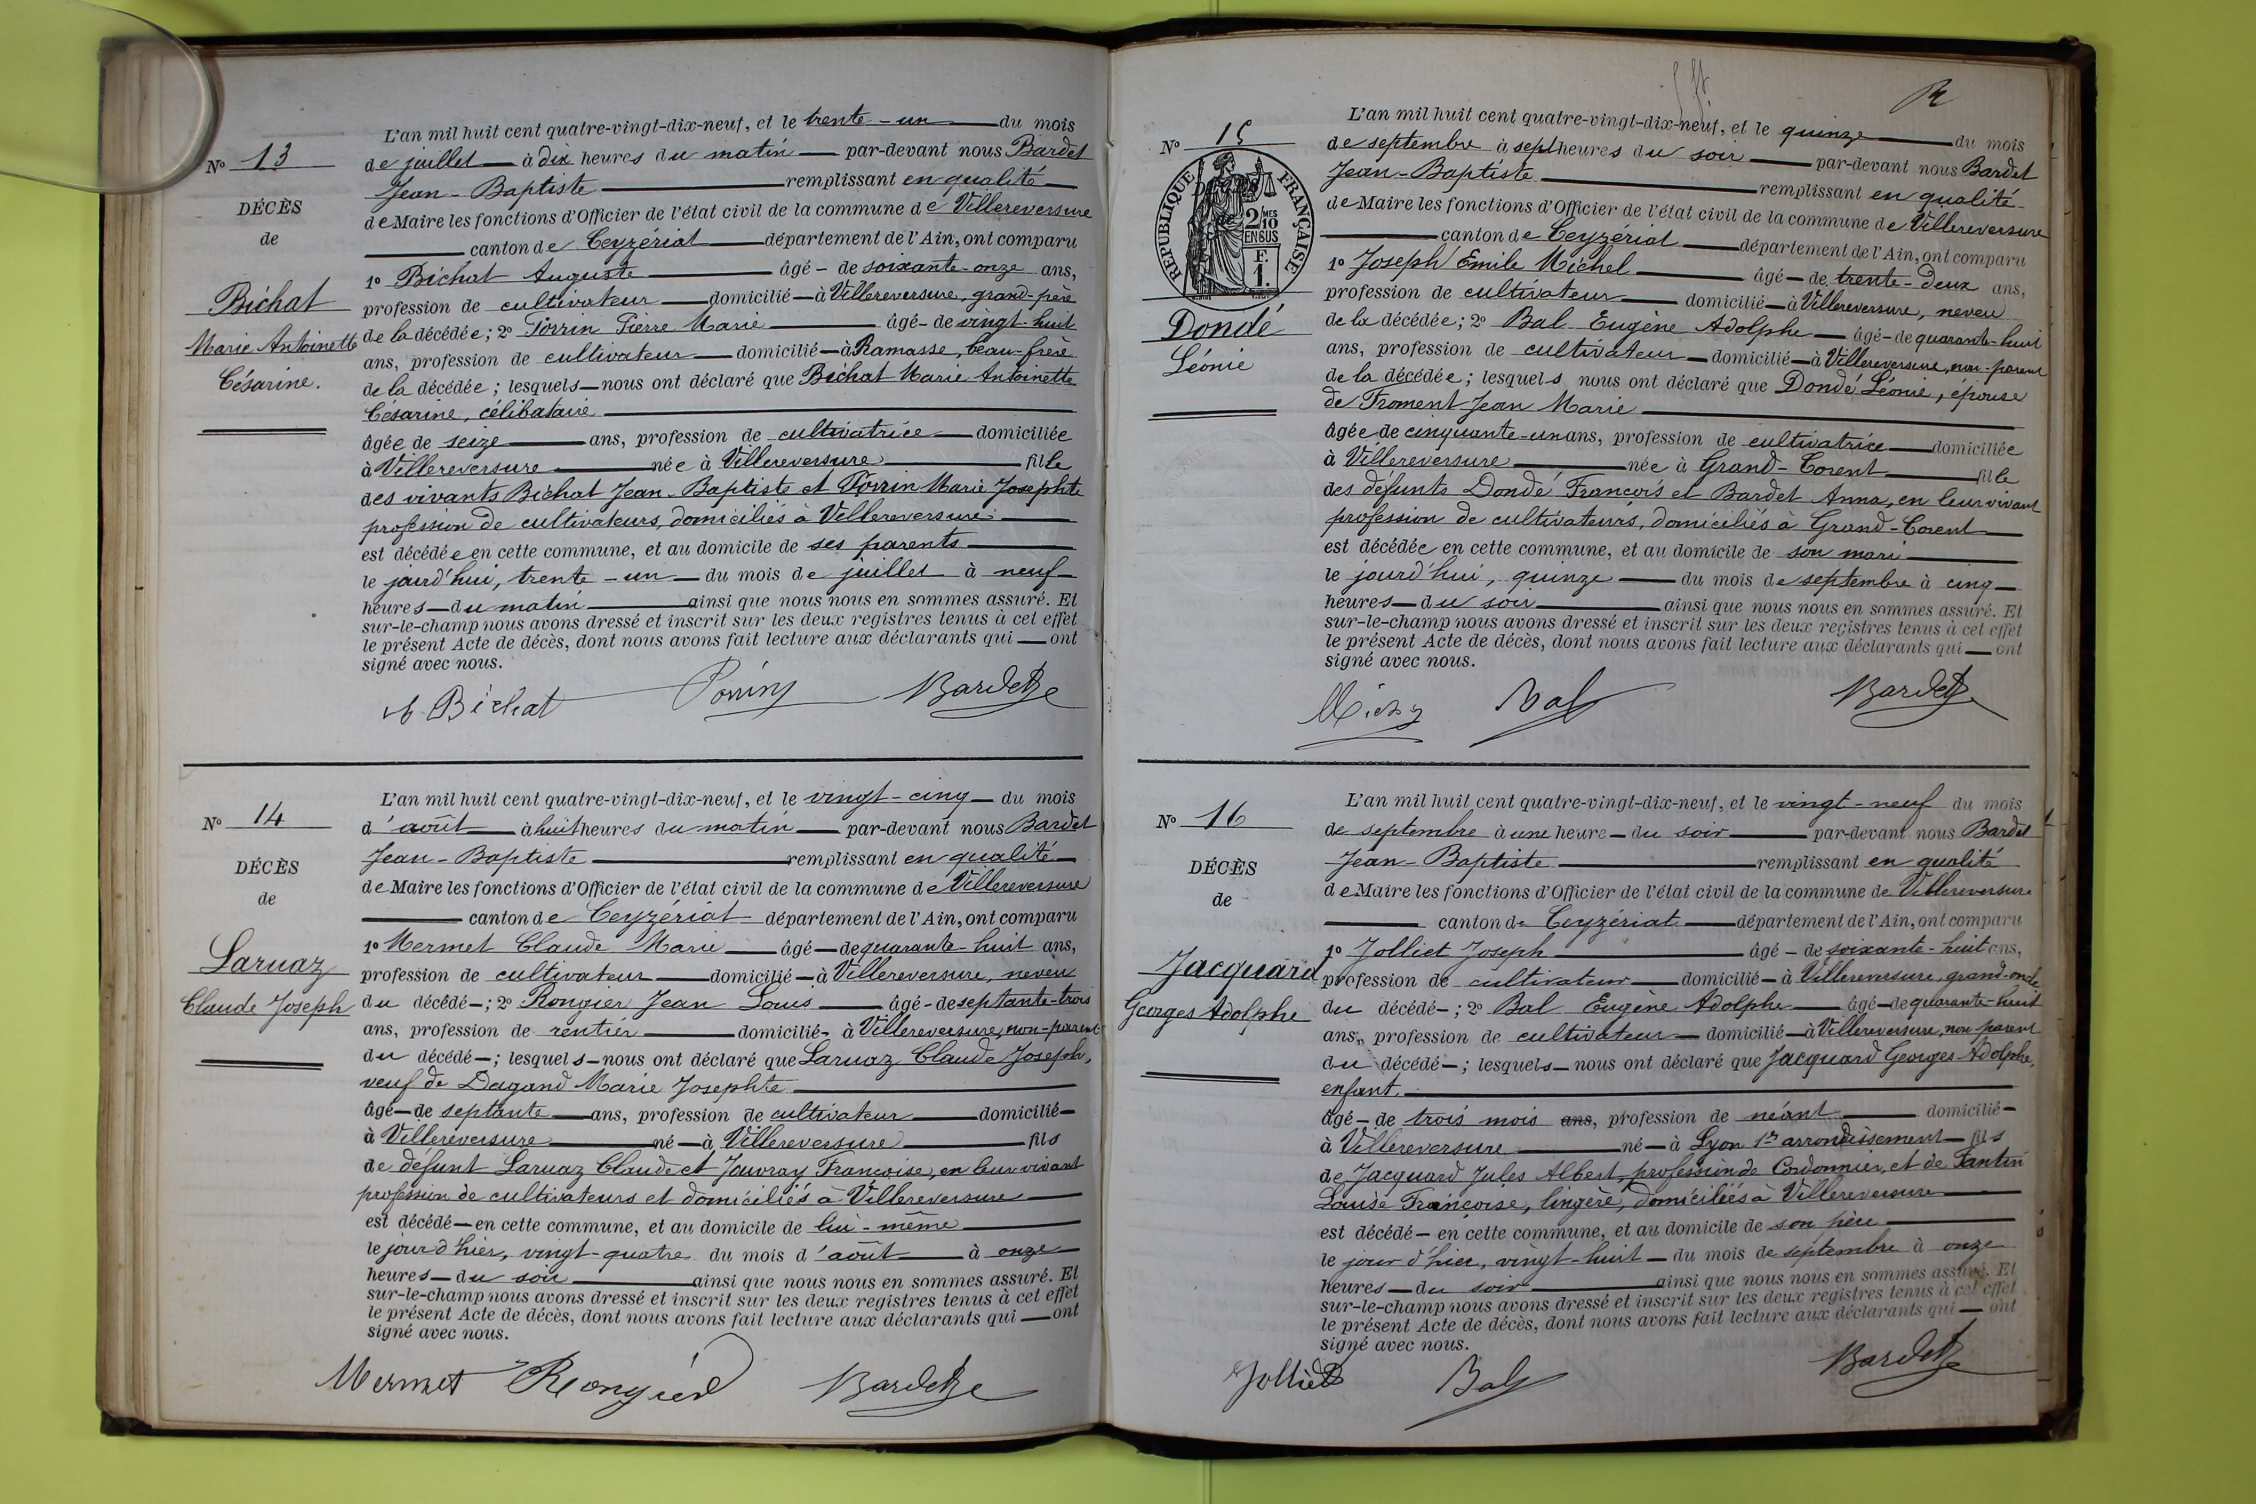 N° 13
DÉCÈS
de
Bichat
Marie Antoinette
Césarine.
L'an mil huit cent quatre-vingt-dix-neuf, et le trente-un du mois
de juillet à dix heures du matin par-devant nous Bardet
Jean-Baptiste remplissant en qualité
de Maire les fonctions d'Officier de l'état civil de la commune de Villereversure
canton de Ceyzériat département de l'Ain, ont comparu
1° Bichat Auguste âgé - de soixante-onze ans,
profession de cultivateur domicilié à Villereversure, grand-père
de la décédée; 2° Porrin Pierre Marie âgé - de vingt-huit
ans, profession de cultivateur domicilié à Ramasse, beau-frère
de la décédée; lesquels nous ont déclaré que Bichat Marie Antoinette
Césarine, célibataire
âgée de seize ans, profession de cultivatrice domiciliée
à Villereversure née à Villereversure fille
des vivants Bichat Jean-Baptiste et Porrin Marie Josephte
profession de cultivateurs, domiciliés à Villereversure
est décédée en cette commune, et au domicile de ses parents
le jourd'hui, trente-un du mois de juillet à neuf
heures du matin ainsi que nous nous en sommes assuré. Et
sur-le-champ nous avons dressé et inscrit sur les deux registres tenus à cet effet
le présent Acte de décès, dont nous avons fait lecture aux déclarants qui ont
signé avec nous.
A. Bichat Porrin Bardet
N° 14
DÉCÈS
de
Laruaz
Claude Joseph
L'an mil huit cent quatre-vingt-dix-neuf, et le vingt-cinq du mois
d'août à huit heures du matin par-devant nous Bardet
Jean-Baptiste remplissant en qualité
de Maire les fonctions d'Officier de l'état civil de la commune de Villereversure
canton de Ceyzériat département de l'Ain, ont comparu
1° Mermet Claude Marie âgé de quarante-huit ans,
profession de cultivateur domicilié à Villereversure, neveu
du décédé; 2° Rongier Jean Louis âgé - de septante-trois
ans, profession de rentier domicilié - à Villereversure, non-parent
du décédé; lesquels nous ont déclaré que Laruaz Claude Joseph,
veuf de Dagand Marie Josephte
âgé de septante ans, profession de cultivateur domicilié
à Villereversure né à Villereversure fils
de défunt Laruaz Claude et Jouvray Françoise, en leur vivant
profession de cultivateurs et domiciliés à Villereversure
est décédé en cette commune, et au domicile de lui-même
le jour d'hier, vingt-quatre du mois d'août à onze
heures du soir ainsi que nous nous en sommes assuré. Et
sur-le-champ nous avons dressé et inscrit sur les deux registres tenus à cet effet
le présent Acte de décès, dont nous avons fait lecture aux déclarants qui ont
signé avec nous.
Mermet Rongier Bardet
N° 15
RÉPUBLIQUE FRANÇAISE
2 MES
10
EN SUS
F.
1.
Dondé
Léonie
L'an mil huit cent quatre-vingt-dix-neuf, et le quinze du mois
de septembre à sept heures du soir par-devant nous Bardet
Jean-Baptiste remplissant en qualité
de Maire les fonctions d'Officier de l'état civil de la commune de Villereversure
canton de Ceyzériat département de l'Ain, ont comparu
1° Joseph Emile Michel âgé de trente-deux ans,
profession de cultivateur domicilié à Villereversure, neveu
de la décédée; 2° Bal Eugène Adolphe âgé - de quarante-huit
ans, profession de cultivateur domicilié à Villereversure, non-parent
de la décédée; lesquels nous ont déclaré que Dondé Léonie, épouse
de Froment Jean Marie
âgée de cinquante-un ans, profession de cultivatrice domiciliée
à Villereversure née à Grand-Corent fille
des défunts Dondé François et Bardet Anna, en leur vivant
profession de cultivateurs, domiciliés à Grand-Corent
est décédée en cette commune, et au domicile de son mari
le jourd'hui, quinze du mois de septembre à cinq
heures du soir ainsi que nous nous en sommes assuré. Et
sur-le-champ nous avons dressé et inscrit sur les deux registres tenus à cet effet
le présent Acte de décès, dont nous avons fait lecture aux déclarants qui ont
signé avec nous.
Bal Bardet
N° 16
DÉCÈS
de
Jacquard
Georges Adolphe
L'an mil huit cent quatre-vingt-dix-neuf, et le vingt-neuf du mois
de septembre à une heure du soir par-devant nous Bardet
Jean-Baptiste remplissant en qualité
de Maire les fonctions d'Officier de l'état civil de la commune de Villereversure
canton de Ceyzériat département de l'Ain, ont comparu
1° Jolliet Joseph âgé - de soixante-huit ans,
profession de cultivateur domicilié à Villereversure, grand-oncle
du décédé; 2° Bal Eugène Adolphe âgé de quarante-huit
ans, profession de cultivateur domicilié à Villereversure, non parent
du décédé; lesquels nous ont déclaré que Jacquard Georges Adolphe,
enfant
âgé - de trois mois ans, profession de néant domicilié
à Villereversure né à Lyon 1er arrondissement fils
de Jacquard Jules Albert, profession de Cordonnier, et de Fantin
Louise Françoise, lingère, domiciliés à Villereversure
est décédé en cette commune, et au domicile de son père
le jour d'hier, vingt-huit du mois de septembre à onze
heures du soir ainsi que nous nous en sommes assuré. Et
sur-le-champ nous avons dressé et inscrit sur les deux registres tenus à cet effet
le présent Acte de décès, dont nous avons fait lecture aux déclarants qui ont
signé avec nous.
Jolliet Bal Bardet